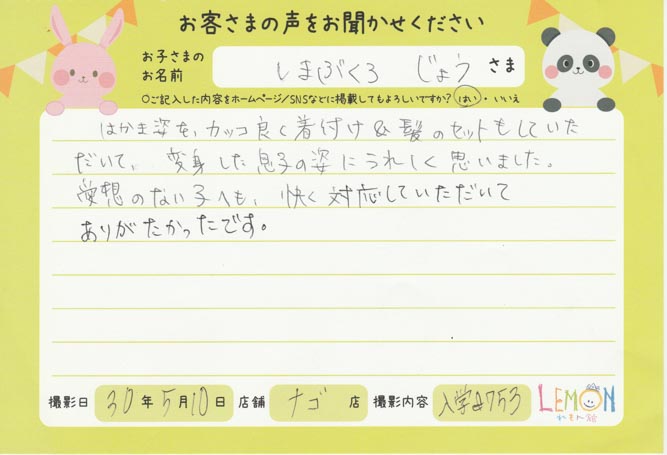 お客さまの声をお聞かせください
お子さまの
お名前
しまぶくろ じょう さま
○ご記入した内容をホームページ/SNSなどに掲載してもよろしいですか? はい・いいえ
はかま姿を、カッコ良く着付け&髪のセットもしていた
だいて、変身した息子の姿にうれしく思いました。
愛想のない子へも、快く対応していただいて
ありがたかったです。
撮影日 30年5月10日 店舗 ナゴ 店 撮影内容 入学&753
LEMON
れもん館